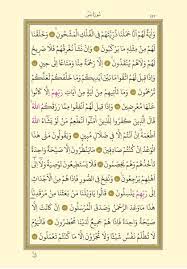 سُورَةُ يٰسٓ
وَاٰيَةٌ لَهُمْ اَنَّا حَمَلْنَا ذُرِّيَّتَهُمْ فِي الْفُلْكِ الْمَشْحُونِ وَخَلَقْنَا
لَهُمْ مِنْ مِثْلِهِ مَا يَرْكَبُونَ وَاِنْ نَشَأْ نُغْرِقْهُمْ فَلَا صَرِيخَ
لَهُمْ وَلَا هُمْ يُنْقَذُونَ اِلَّا رَحْمَةً مِنَّا وَمَتَاعًا اِلٰى حِينٍ
وَاِذَا قِيلَ لَهُمُ اتَّقُوا مَا بَيْنَ اَيْدِيكُمْ وَمَا خَلْفَكُمْ لَعَلَّكُمْ
تُرْحَمُونَ وَمَا تَأْتِيهِمْ مِنْ اٰيَةٍ مِنْ اٰيَاتِ رَبِّهِمْ اِلَّا كَانُوا
عَنْهَا مُعْرِضِينَ وَاِذَا قِيلَ لَهُمْ اَنْفِقُوا مِمَّا رَزَقَكُمُ اللّٰهُ
قَالَ الَّذِينَ كَفَرُوا لِلَّذِينَ اٰمَنُوا اَنُطْعِمُ مَنْ لَوْ يَشَاءُ اللّٰهُ
اَطْعَمَهُ اِنْ اَنْتُمْ اِلَّا فِي ضَلَالٍ مُبِينٍ وَيَقُولُونَ مَتٰى هٰذَا
الْوَعْدُ اِنْ كُنْتُمْ صَادِقِينَ مَا يَنْظُرُونَ اِلَّا صَيْحَةً وَاحِدَةً
تَأْخُذُهُمْ وَهُمْ يَخِصِّمُونَ فَلَا يَسْتَطِيعُونَ تَوْصِيَةً وَلَا اِلٰى اَهْلِهِمْ
يَرْجِعُونَ وَنُفِخَ فِي الصُّورِ فَاِذَا هُمْ مِنَ الْاَجْدَاثِ
اِلٰى رَبِّهِمْ يَنْسِلُونَ قَالُوا يَا وَيْلَنَا مَنْ بَعَثَنَا مِنْ مَرْقَدِنَا
هٰذَا مَا وَعَدَ الرَّحْمٰنُ وَصَدَقَ الْمُرْسَلُونَ اِنْ كَانَتْ اِلَّا
صَيْحَةً وَاحِدَةً فَاِذَا هُمْ جَمِيعٌ لَدَيْنَا مُحْضَرُونَ فَالْيَوْمَ
لَا تُظْلَمُ نَفْسٌ شَيْئًا وَلَا تُجْزَوْنَ اِلَّا مَا كُنْتُمْ تَعْمَلُونَ